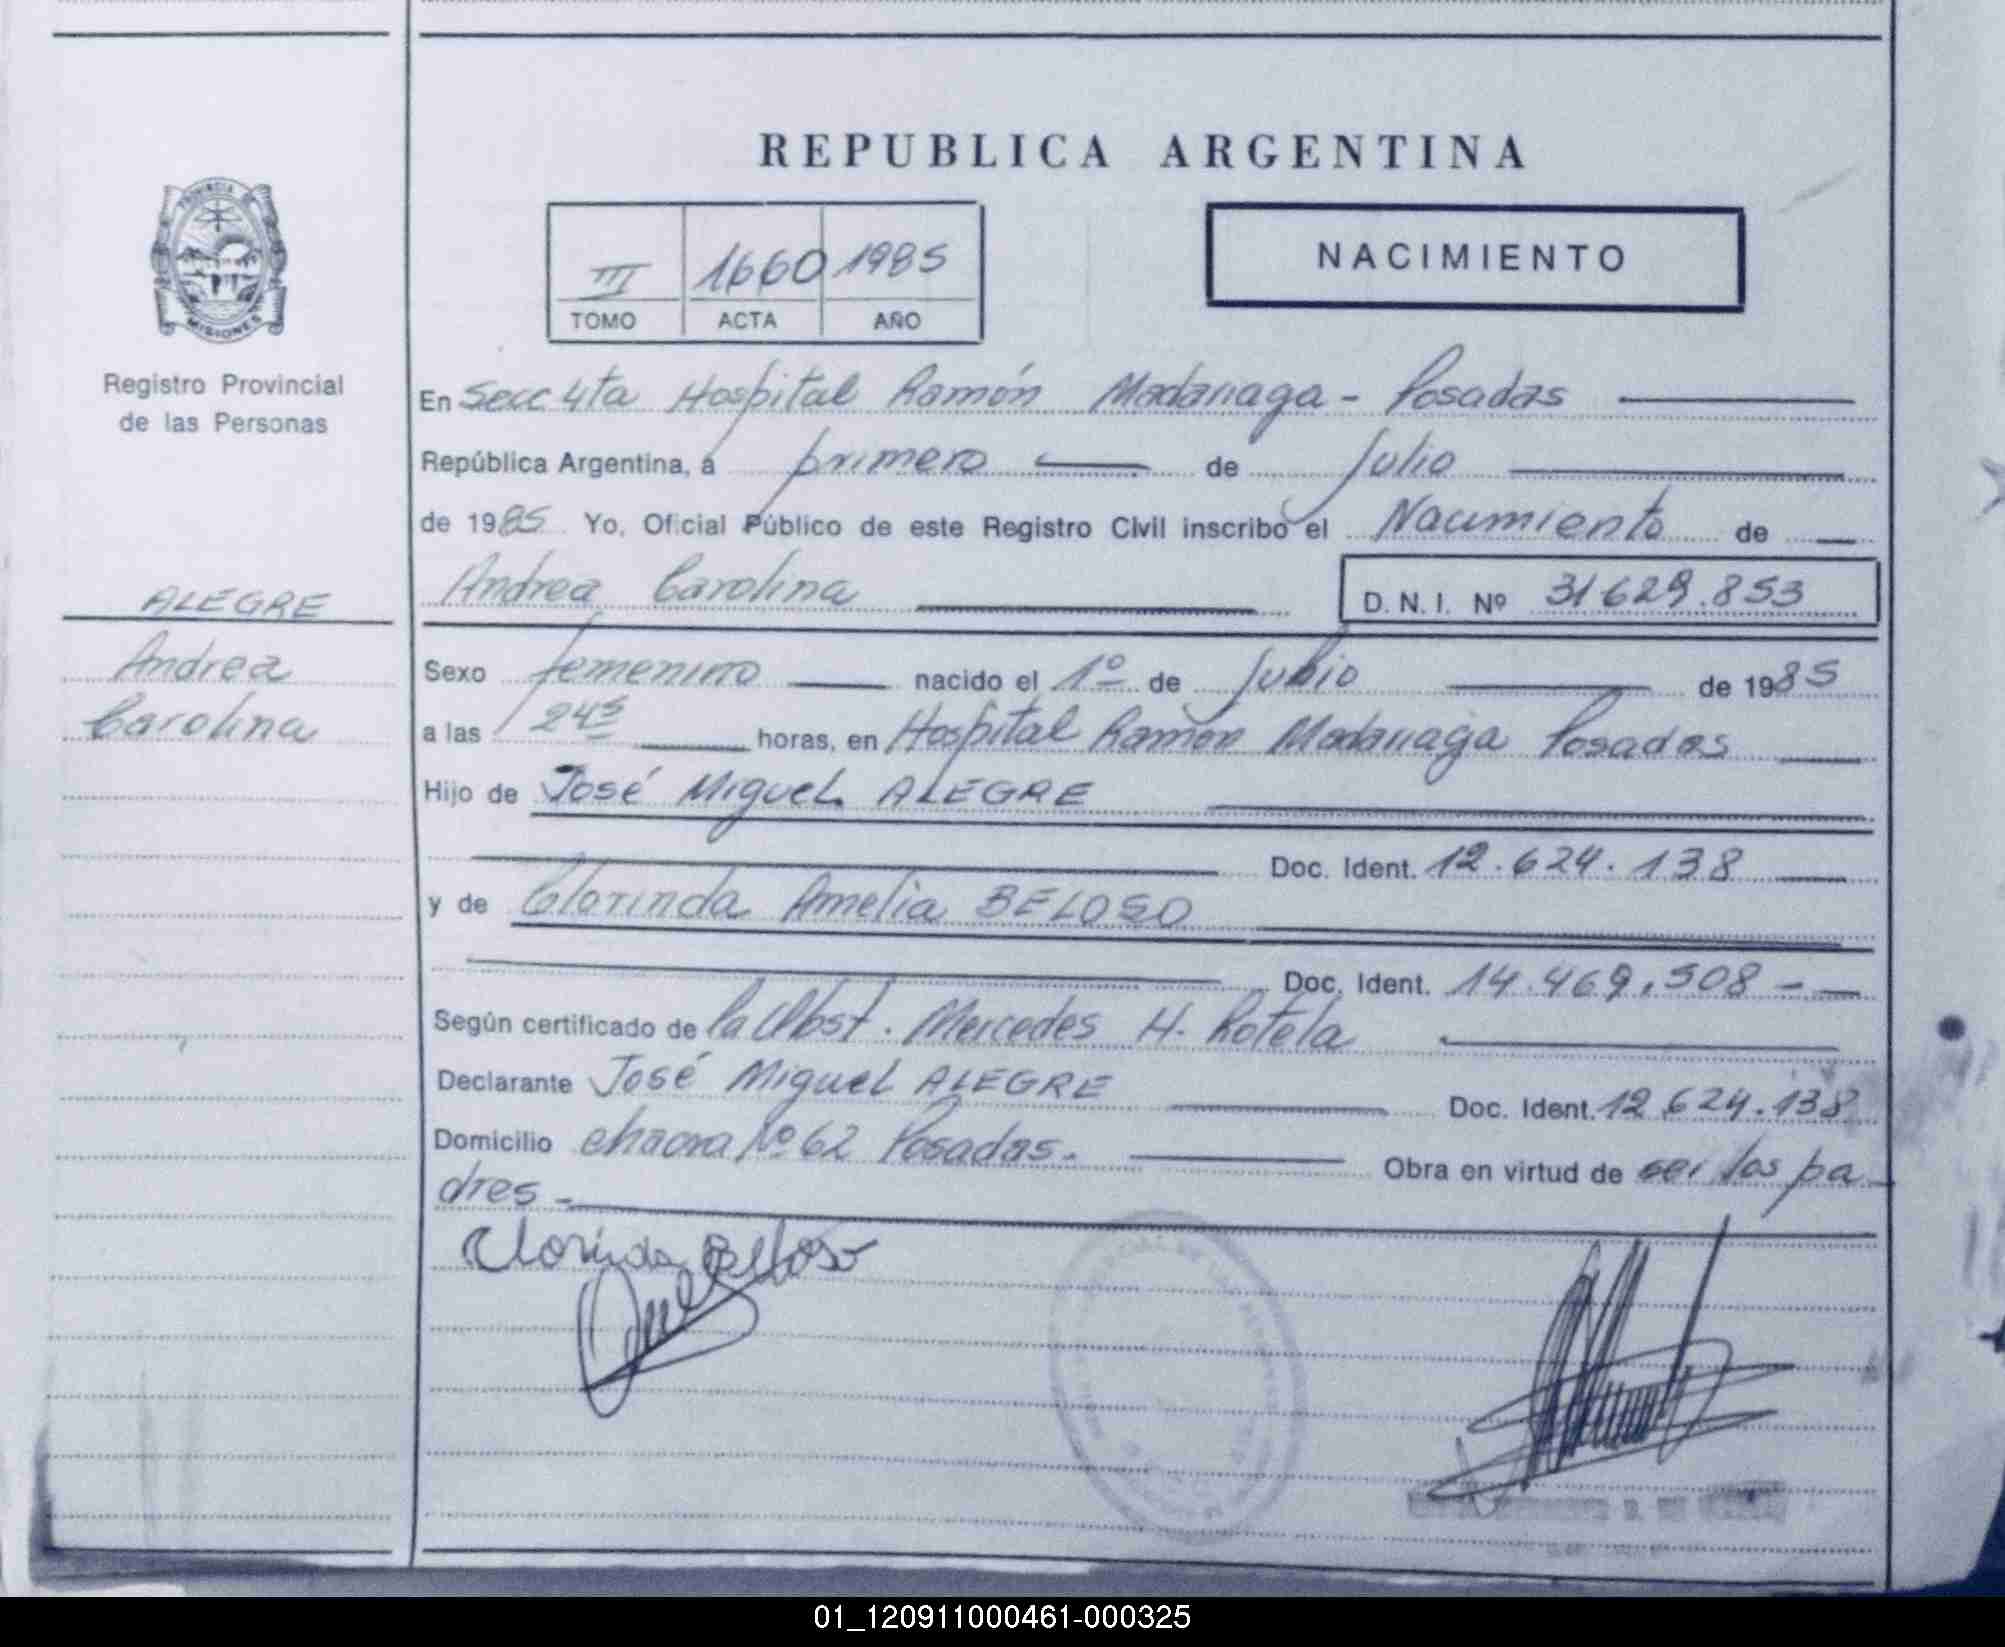 REPUBLICA ARGENTINA
PROVINCIA DE
MISIONES
Registro Provincial
de las Personas
III 1660 1985
TOMO ACTA AÑO
NACIMIENTO
En Secc 4ta Hospital Ramón Madariaga - Posadas
República Argentina, a primero de Julio
de 1985 Yo, Oficial Público de este Registro Civil inscribo el Nacimiento de
Andrea Carolina D. N. I. Nº 31629.853
ALEGRE
Andrea
Carolina
Sexo femenino nacido el 1º de Julio de 1985
a las 24s horas, en Hospital Ramón Madariaga Posadas
Hijo de José Miguel ALEGRE
Doc. Ident. 12.624.138
y de Clorinda Amelia BELOSO
Doc. Ident. 14.469.508 -
Según certificado de la Obst. Mercedes H. Rotela
Declarante José Miguel ALEGRE Doc. Ident. 12.624.138
Domicilio chacra Nº 62 Posadas. Obra en virtud de ser los pa
dres -
Clorinda Belloso
01_120911000461-000325